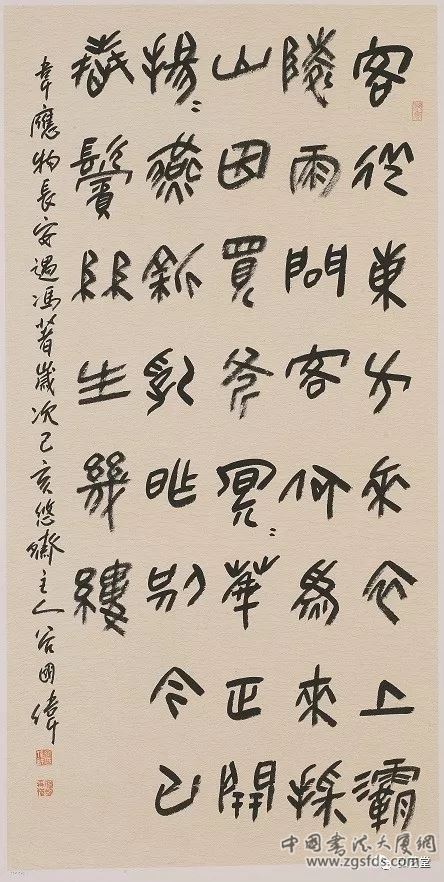 客從東方來衣上灞
陵雨問客何為來採
山因買斧冥〻華正開
揚〻燕新乳昨別今已
春鬢絲生幾縷
韋應物長安遇馮著歲次己亥悠齋主人谷國偉
中國書法大厦網
www.zgsfds.com